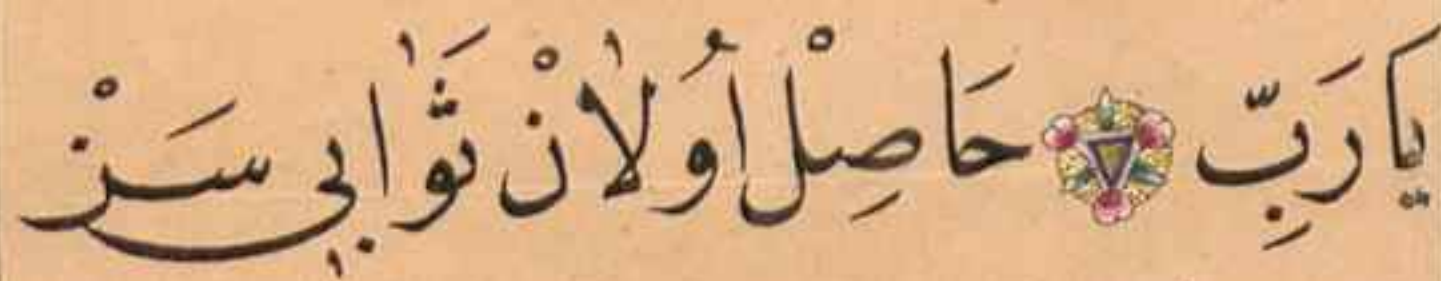 يَا رَبِّ حَاصِلْ اُولَانْ ثَوَابِي سَنْ